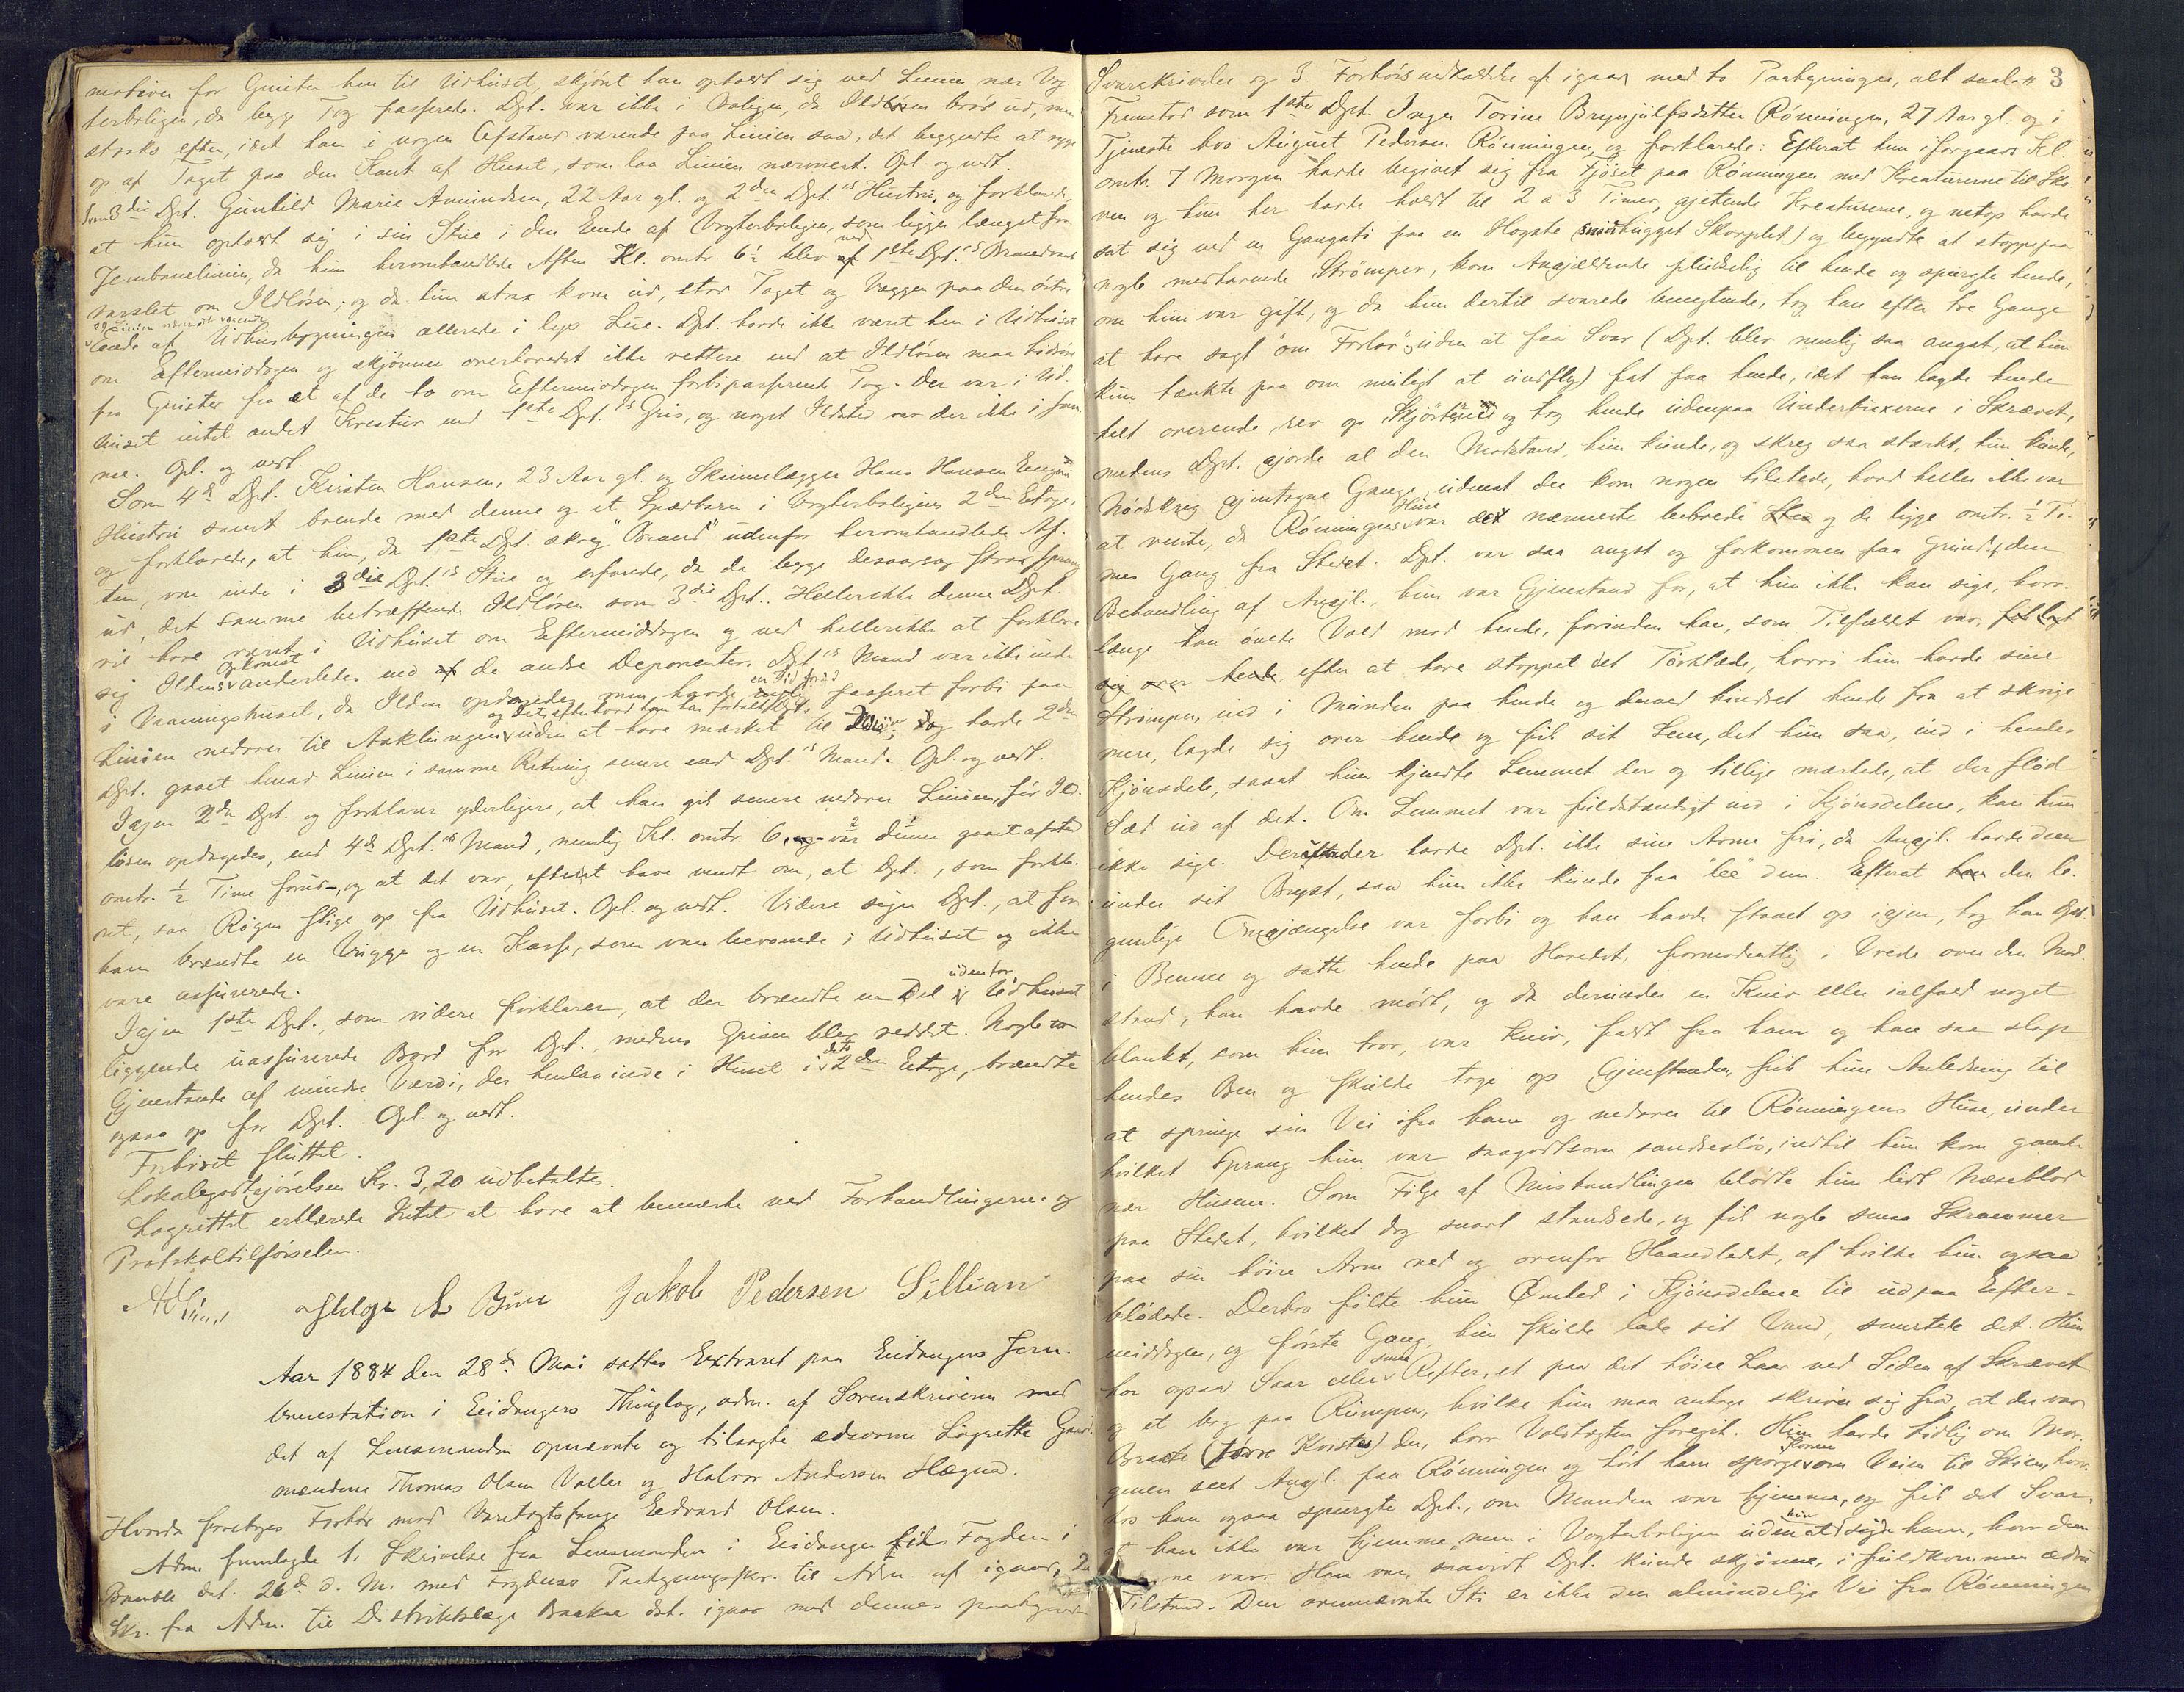 motiver for Gnisten hen til Udhuset, skjønt han opholdt sig ved Linien nær Vog-
terboligen, da begge Tog passerede. Dpt. var ikke i Boligen, da Ildløsen brød ud, men
straks efter, idet han i nogen Afstand værende paa Linien saa, det begyndte at ryge
op af Taget paa den Kant af Huset, som laa Linien nærmest. Opl. og vedt.
Som 3die Dpt. Gunhild Marie Amundsen, 22 Aar gl. og 2den Dpt.'s Hustru, og forklarede,
at hun opholdt sig i sin Stue i den Ende af Vogterboligen, som ligger længst fra
Jernbanelinien, da hun heromhandlede Aften Kl. omtr. 6½ blev ved 1ste Dpt.'s Brandraab
varslet om Ildløsen; og da hun strax kom ud, stod Taget og Væggen paa den østre
og Linien nærmest værende
Ende af Udhusbygningen allerede i lys Lue. Dpt. havde ikke været hen i Udhuset
om Eftermiddagen og skjønner overhovedet ikke rettere end at Ildløsen maa hidrøre
fra Gnister fra et af de to om Eftermiddagen forbipasserende Tog. Der var i Ud-
huset intet andet Kreatur end 1ste Dpt.'s Gris, og noget Ildsted var der ikke i sam-
me. Opl. og vedt
Som 4de Dpt. Kirsten Hansen, 23 Aar gl. og Skinnelægger Hans Hansen
Hustru samt boende med denne og et Spædbarn i Vogterboligens 2den Etage,
og forklarede, at hun, da 1ste Dpt. skreg "Brand" udenfor heromhandlede Af-
ten, var inde i 3die Dpt.'s Stue og erfarede, da de begge desaarsag strax sprang
ud, det samme betræffende Ildløsen som 3die Dpt.. Hellerikke denne Dpt.
vil have været i Udhuset om Eftermiddagen og ved hellerikke at forklare
sig Ildens Opkomst anderledes end de andre Deponenter. Dpt.'s Mand var ikke inde
i Vaaningshuset, da Ilden opdagedes, men havde en Tid forud passeret forbi paa
Linien nedover til Aaklungen og det, efterhvad han har fortalt Dpt. uden at have mærket til Ildløs; dog havde 2den
Dpt. gaaet henad Linien i samme Retning senere end Dpt.'s Mand. Opl. og vedt.
Igjen 2den Dpt. og forklarer yderligere, at han gik senere nedover Linien, før Ild-
løsen opdagedes, end 4de Dpt.'s Mand, nemlig Kl. omtr. 6, var denne gaaet afsted
omtr. ½ Time forud, og at det var, efterat have vendt om, at Dpt., som forkla-
ret, saa Røgen stige op fra Udhuset. Opl. og vedt. Videre siger Dpt., at for
ham brændte en Vugge og en Kasse, som vare beroende i Udhuset og ikke
vare assurerede.
Igjen 1ste Dpt., som videre forklarer, at der brændte en Del udenfor Udhuset
liggende uassurerede Bord for Dpt., medens Grisen blev reddet. Nogle
Gjenstande af mindre Værdi, der henlaa inde i Huset i dets 2den Etage, brændte
ogsaa op for Dpt. Opl. og vedt.
Forhøret sluttet.
Lokalegodtgjørelsen Kr. 3,20 udbetaltes.
Lagrettet erklærede Intet at have at bemærke ved Forhandlingerne og
Protokoltilførselen.
Jakob Pedersen Sillian
Aar 1884 den 28de Mai sattes Extraret paa Eidangers Jern-
banestation i Eidangers Thinglag, adm. af Sorenskriveren med
det af Lensmanden opnævnte og tilsagte edsvorne Lagrette Gaard-
mændene Thomas Olsen Valler og Halvor Andersen Hægna.
Hvorda foretoges Forhør mod Varetægtsfange Edvard Olsen.
Adm. fremlagde 1. Skrivelse fra Lensmanden i Eidanger til Fogden i
Bamble dat. 26de d. M. med Fogdens Paategningsskr. til Adm. af igaar, 2.
Skr. fra Adm. til Distriktslæge Baakøe dat. igaar med dennes paategnede
3
Svarskrivelse og 3. Forhørsindkaldelse af igaar med to Paategninger, alt saalr.
Fremstod som 1ste Dpt. Inger Torine Brynjulfsdatter Rønningen, 27 Aar gl. og i
Tjeneste hos August Pedersen Rønningen, og forklarede: Efterat hun iforgaars Kl.
omtr. 7 Morgen havde begivet sig fra Fjøset paa Rønningen med Kreaturerne til Sko-
ven og hun her havde holdt til 2 a 3 Timer, gjetende Kreaturerne, og netop havde
sat sig ved en Gangsti paa en Hogste (snauhugget Skovplet) og begyndte at stoppe paa
nogle medhavende Strømper, kom Angjældende pludselig til hende og spurgte hende,
om hun var gift, og da hun dertil svarede benegtende, tog han efter tre Gange
at have sagt "om Forlov" uden at faa Svar (Dpt. blev nemlig saa angst, at hun
kun tænkte paa om muligt at undfly) fat paa hende, idet han lagde hende
helt overende, rev op Skjørtene og tog hende udenpaa Underbuxerne i Skrævet,
medens Dpt. gjorde al den Modstand, hun kunde, og skreg saa stærkt, hun kunde,
Nødskrig gjentagne Gange, uden at der kom nogen tilstede, hvad heller ikke var
at vente, da Rønningens Huse var de nærmeste beboede og de ligge omtr. ½ Ti-
mes Gang fra Stedet. Dpt. var saa angst og forkommen paa Grund af den
Behandling af Angjl., hun var Gjenstand for, at hun ikke kan sige, hvor-
længe han øvede Vold mod hende, forinden han, som Tilfældet var,
efter at have stoppet det Tørklæde, hvori hun havde sine
Strømper, ind i Munden paa hende og derved hindret hende fra at skrige
mere, lagde sig over hende og fik sit Lem, det hun saa, ind i hendes
Kjønsdele, saaat hun kjendte Lemmet der og tillige mærkede, at der flød
Sæd ud af det. Om Lemmet var fuldstændigt ind i Kjønsdelene, kan hun
ikke sige. Derunder havde Dpt. ikke sine Arme fri, da Angjl. havde dem
under sit Bryst, saa hun ikke kunde faa "lee" dem. Efterat den le-
gemlige Omgjængelse var forbi og han havde staaet op igjen, tog han Dpt.
i Benene og satte hende paa Hovedet, formodentlig i Vrede over den Mod-
stand, han havde mødt, og da derunder en Kniv eller ialfald noget
blankt, som hun tror, var Kniv, faldt fra ham og han saa slap
hendes Ben og skulde tage op Gjenstanden, fik hun Anledning til
at springe sin Vei ifra ham og nedover til Rønningens Huse, under
hvilket Sprang hun var saagodtsom sandsesløs, indtil hun kom ganske
nær Husene. Som Følge af Mishandlingen blødte hun lidt Næseblod
paa Stedet, hvilket dog snart standsede, og fik nogle smaa Skrammer
paa sin høire Arm ved og ovenfor Haandledet, af hvilke hun ogsaa
blødede. Derhos følte hun Ømhed i Kjønsdelene til udpaa Efter-
middagen, og første Gang, hun skulde lade sit Vand, smertede det. Hun
har ogsaa Saar eller smaa Rifter, et paa det høire Laar ved Siden af Skrævet
og et bag paa Rumpen, hvilke hun maa antage skriver sig fra, at der var
Braate (tørre Kviste) der, hvor Voldtægten foregik. Hun havde tidlig om Mor-
genen seet Angjl. paa Rønningen og hørt ham spørge Konen om Veien til Skien, hvor-
hos han ogsaa spurgte Dpt., om Manden var hjemme, og fik det Svar,
at han ikke var hjemme, men i Vogterboligen uden at hun sagde ham, hvor den
var. Han var, saavidt Dpt. kunde skjønne, i fuldkommen ædru
Tilstand. Den ovennævnte Sti er ikke den almindelige Vei fra Rønningen